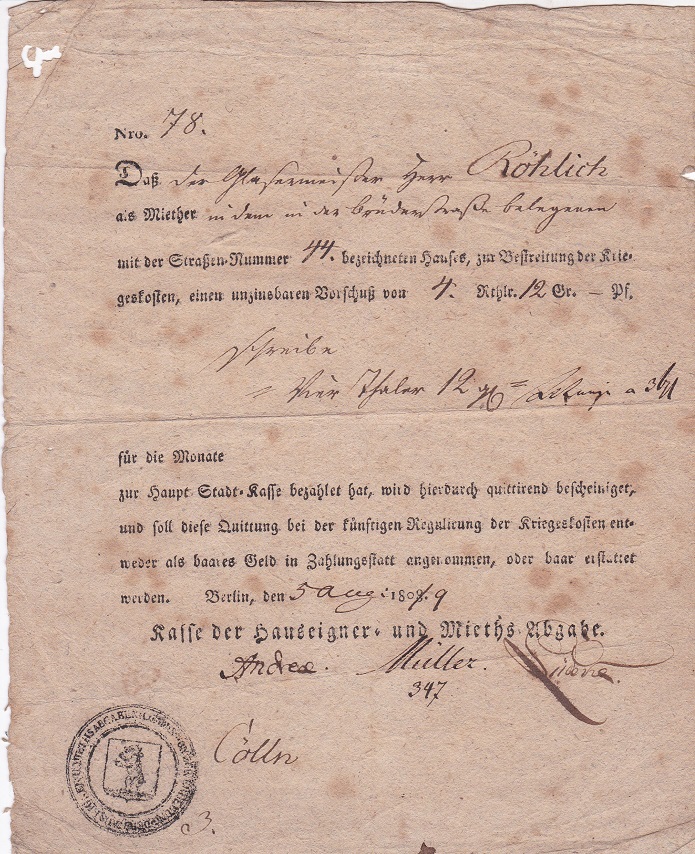 Nro. 78.
Daß der Glasermeister Herr Röhlich
als Miether in dem in der Brüderstraße belegenen
mit der Straßen-Nummer 44. bezeichneten Hauses, zur Bestreitung der Krie-
geskosten, einen unzinsbaren Vorschuß von 4. Rthlr. 12 Gr. — Pf.
schreibe
= Vier Thaler 12 gr =
für die Monate
zur Haupt-Stadt-Kasse bezahlet hat, wird hierdurch quittirend bescheiniget,
und soll diese Quittung bei der künftigen Regulirung der Kriegeskosten ent-
weder als baares Geld in Zahlungsstatt angenommen, oder baar erstattet
werden. Berlin, den 5 Aug: 1809
Kasse der Hauseigner- und Mieths-Abgabe.
Andreae. Müller.
347
Cölln
3.